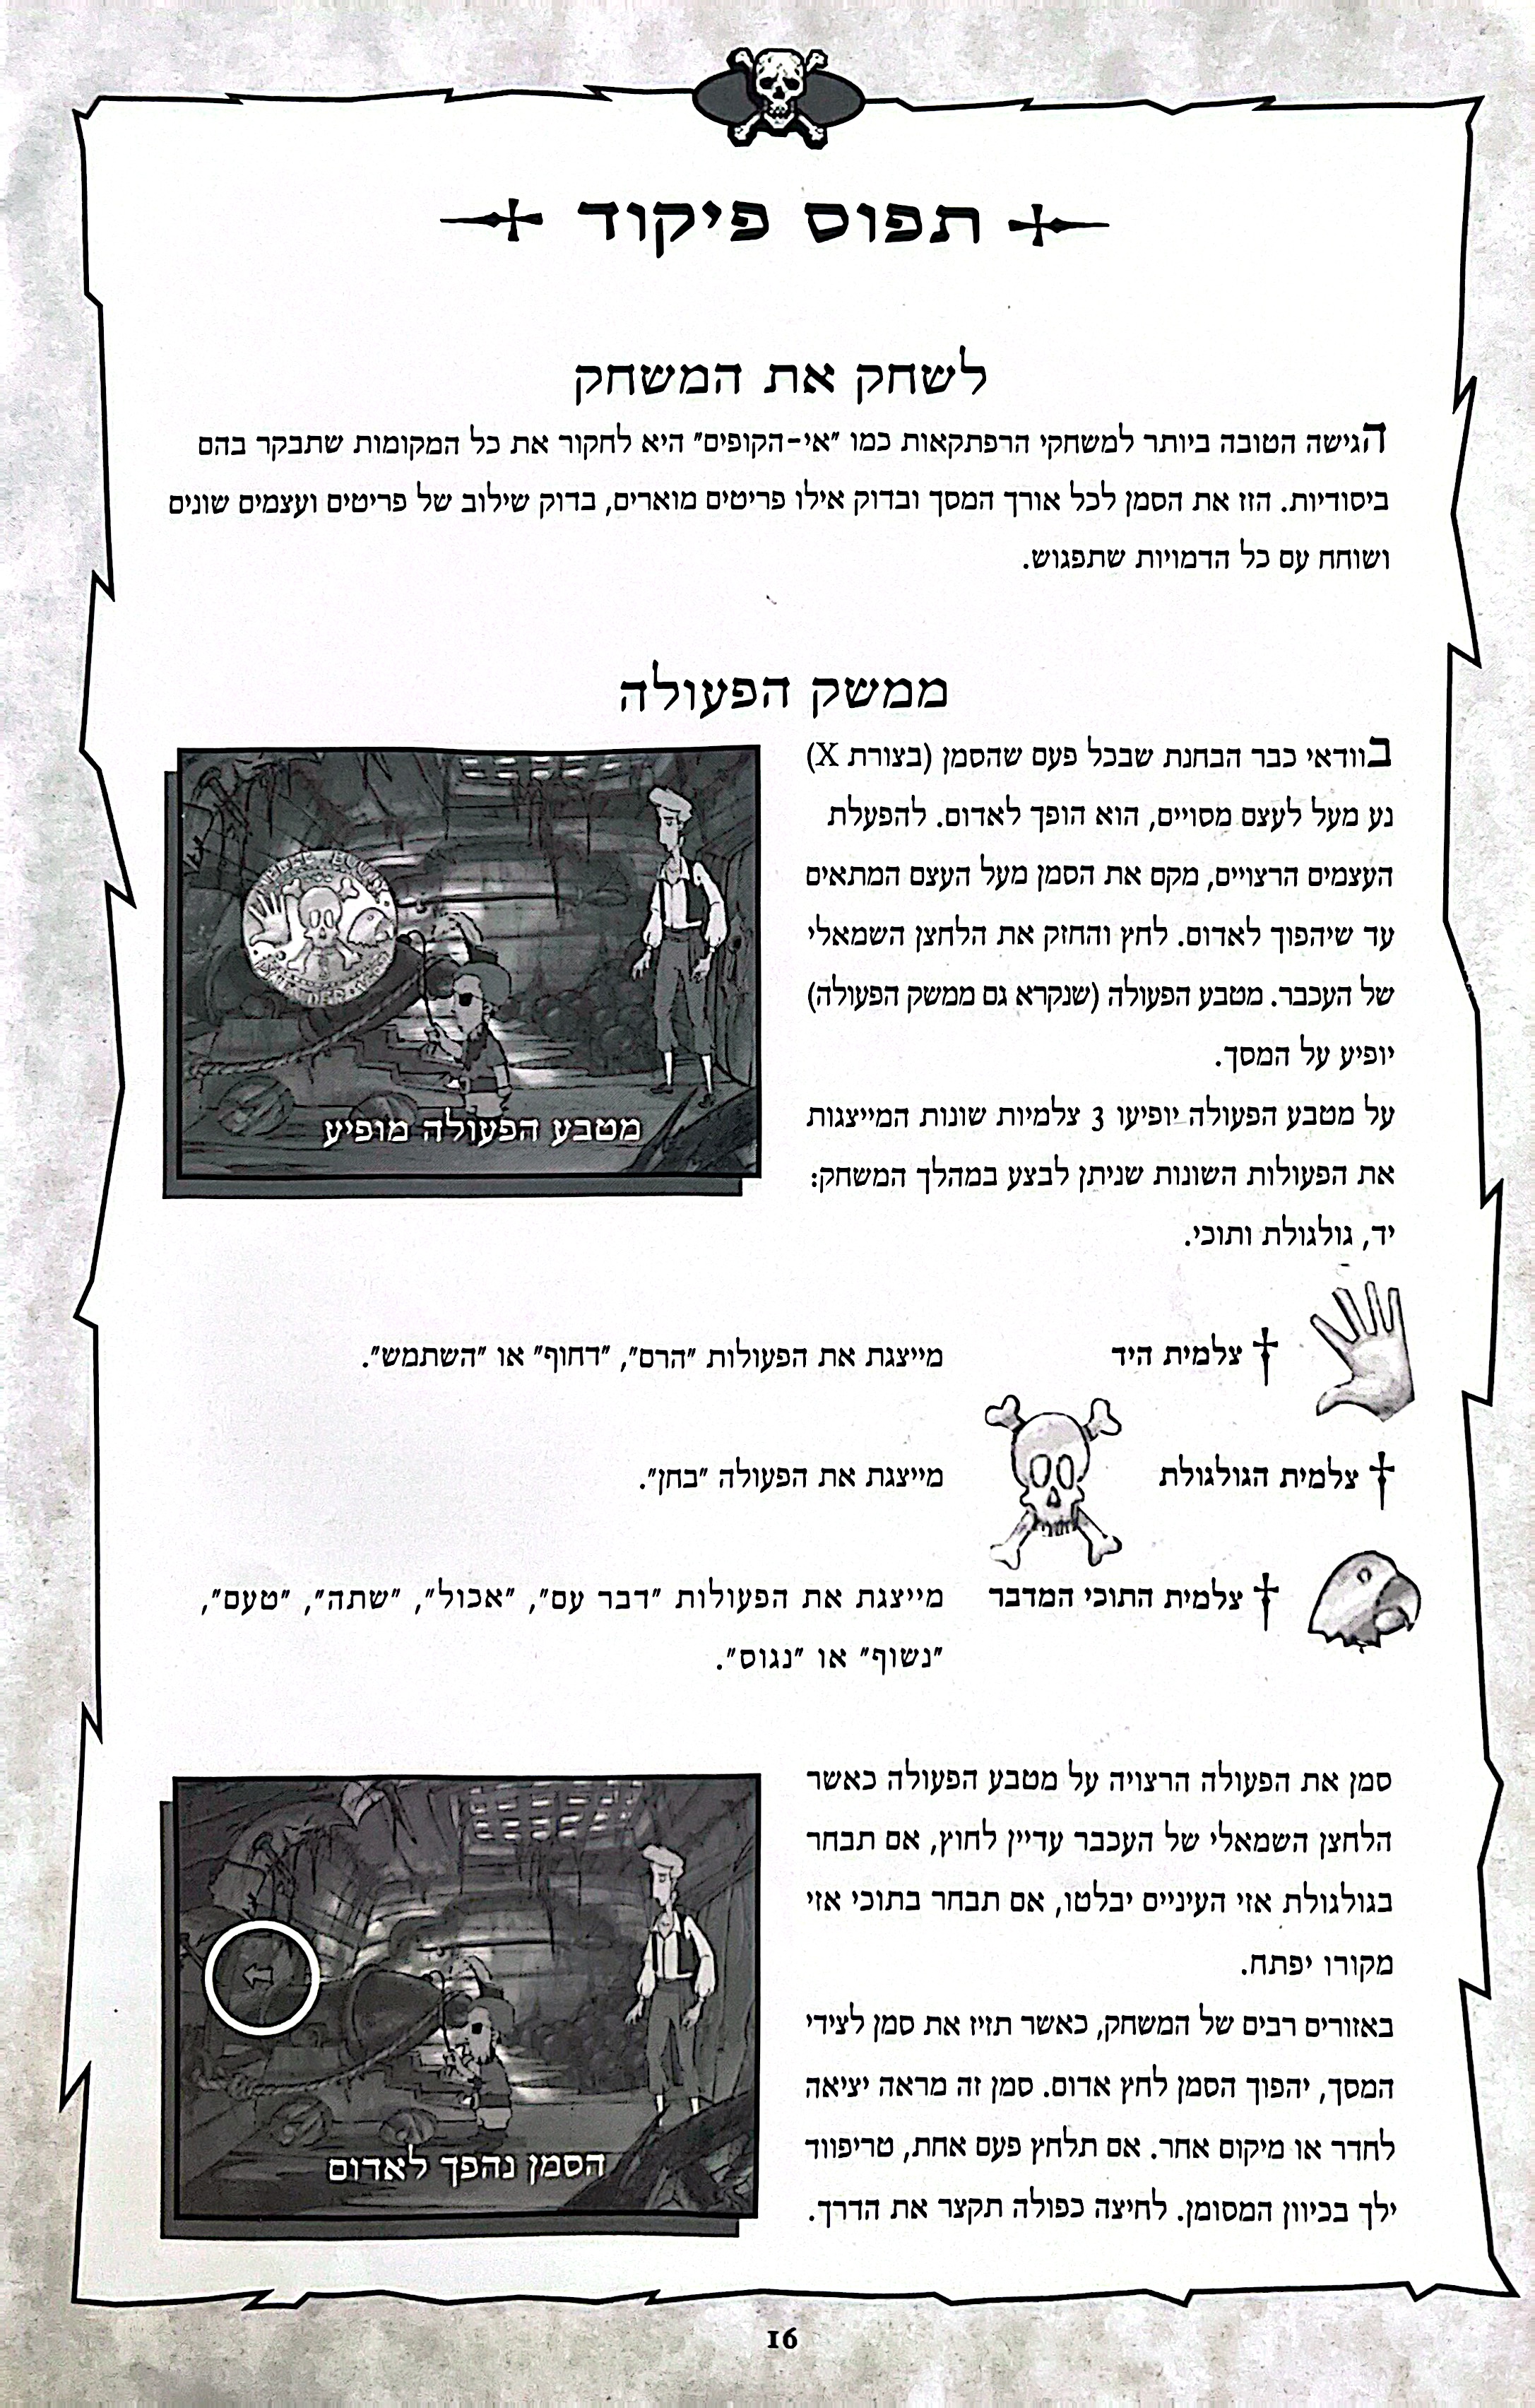 תפוס פיקוד
לשחק את המשחק
הגישה הטובה ביותר למשחקי הרפתקאות כמו "אי-הקופים" היא לחקור את כל המקומות שתבקר בהם
ביסודיות. הזז את הסמן לכל אורך המסך ובדוק אילו פריטים מוארים, בדוק שילוב של פריטים ועצמים שונים
ושוחח עם כל הדמויות שתפגוש.
ממשק הפעולה
בוודאי כבר הבחנת שבכל פעם שהסמן (בצורת X)
נע מעל לעצם מסויים, הוא הופך לאדום. להפעלת
העצמים הרצויים, מקם את הסמן מעל העצם המתאים
עד שיהפוך לאדום. לחץ והחזק את הלחצן השמאלי
של העכבר. מטבע הפעולה (שנקרא גם ממשק הפעולה)
יופיע על המסך.
על מטבע הפעולה יופיעו 3 צלמיות שונות המייצגות
את הפעולות השונות שניתן לבצע במהלך המשחק:
יד, גולגולת ותוכי.
מטבע הפעולה מופיע
צלמית היד מייצגת את הפעולות "הרם", "דחוף" או "השתמש".
צלמית הגולגולת מייצגת את הפעולה "בחן".
צלמית התוכי המדבר מייצגת את הפעולות "דבר עם", "אכול", "שתה", "טעם",
"נשוף" או "נגוס".
סמן את הפעולה הרצויה על מטבע הפעולה כאשר
הלחצן השמאלי של העכבר עדיין לחוץ, אם תבחר
בגולגולת אזי העיניים יבלטו, אם תבחר בתוכי אזי
מקורו יפתח.
באזורים רבים של המשחק, כאשר תזיז את סמן לצידי
המסך, יהפוך הסמן לחץ אדום. סמן זה מראה יציאה
לחדר או מיקום אחר. אם תלחץ פעם אחת, טריפווד
ילך בכיוון המסומן. לחיצה כפולה תקצר את הדרך.
הסמן נהפך לאדום
16